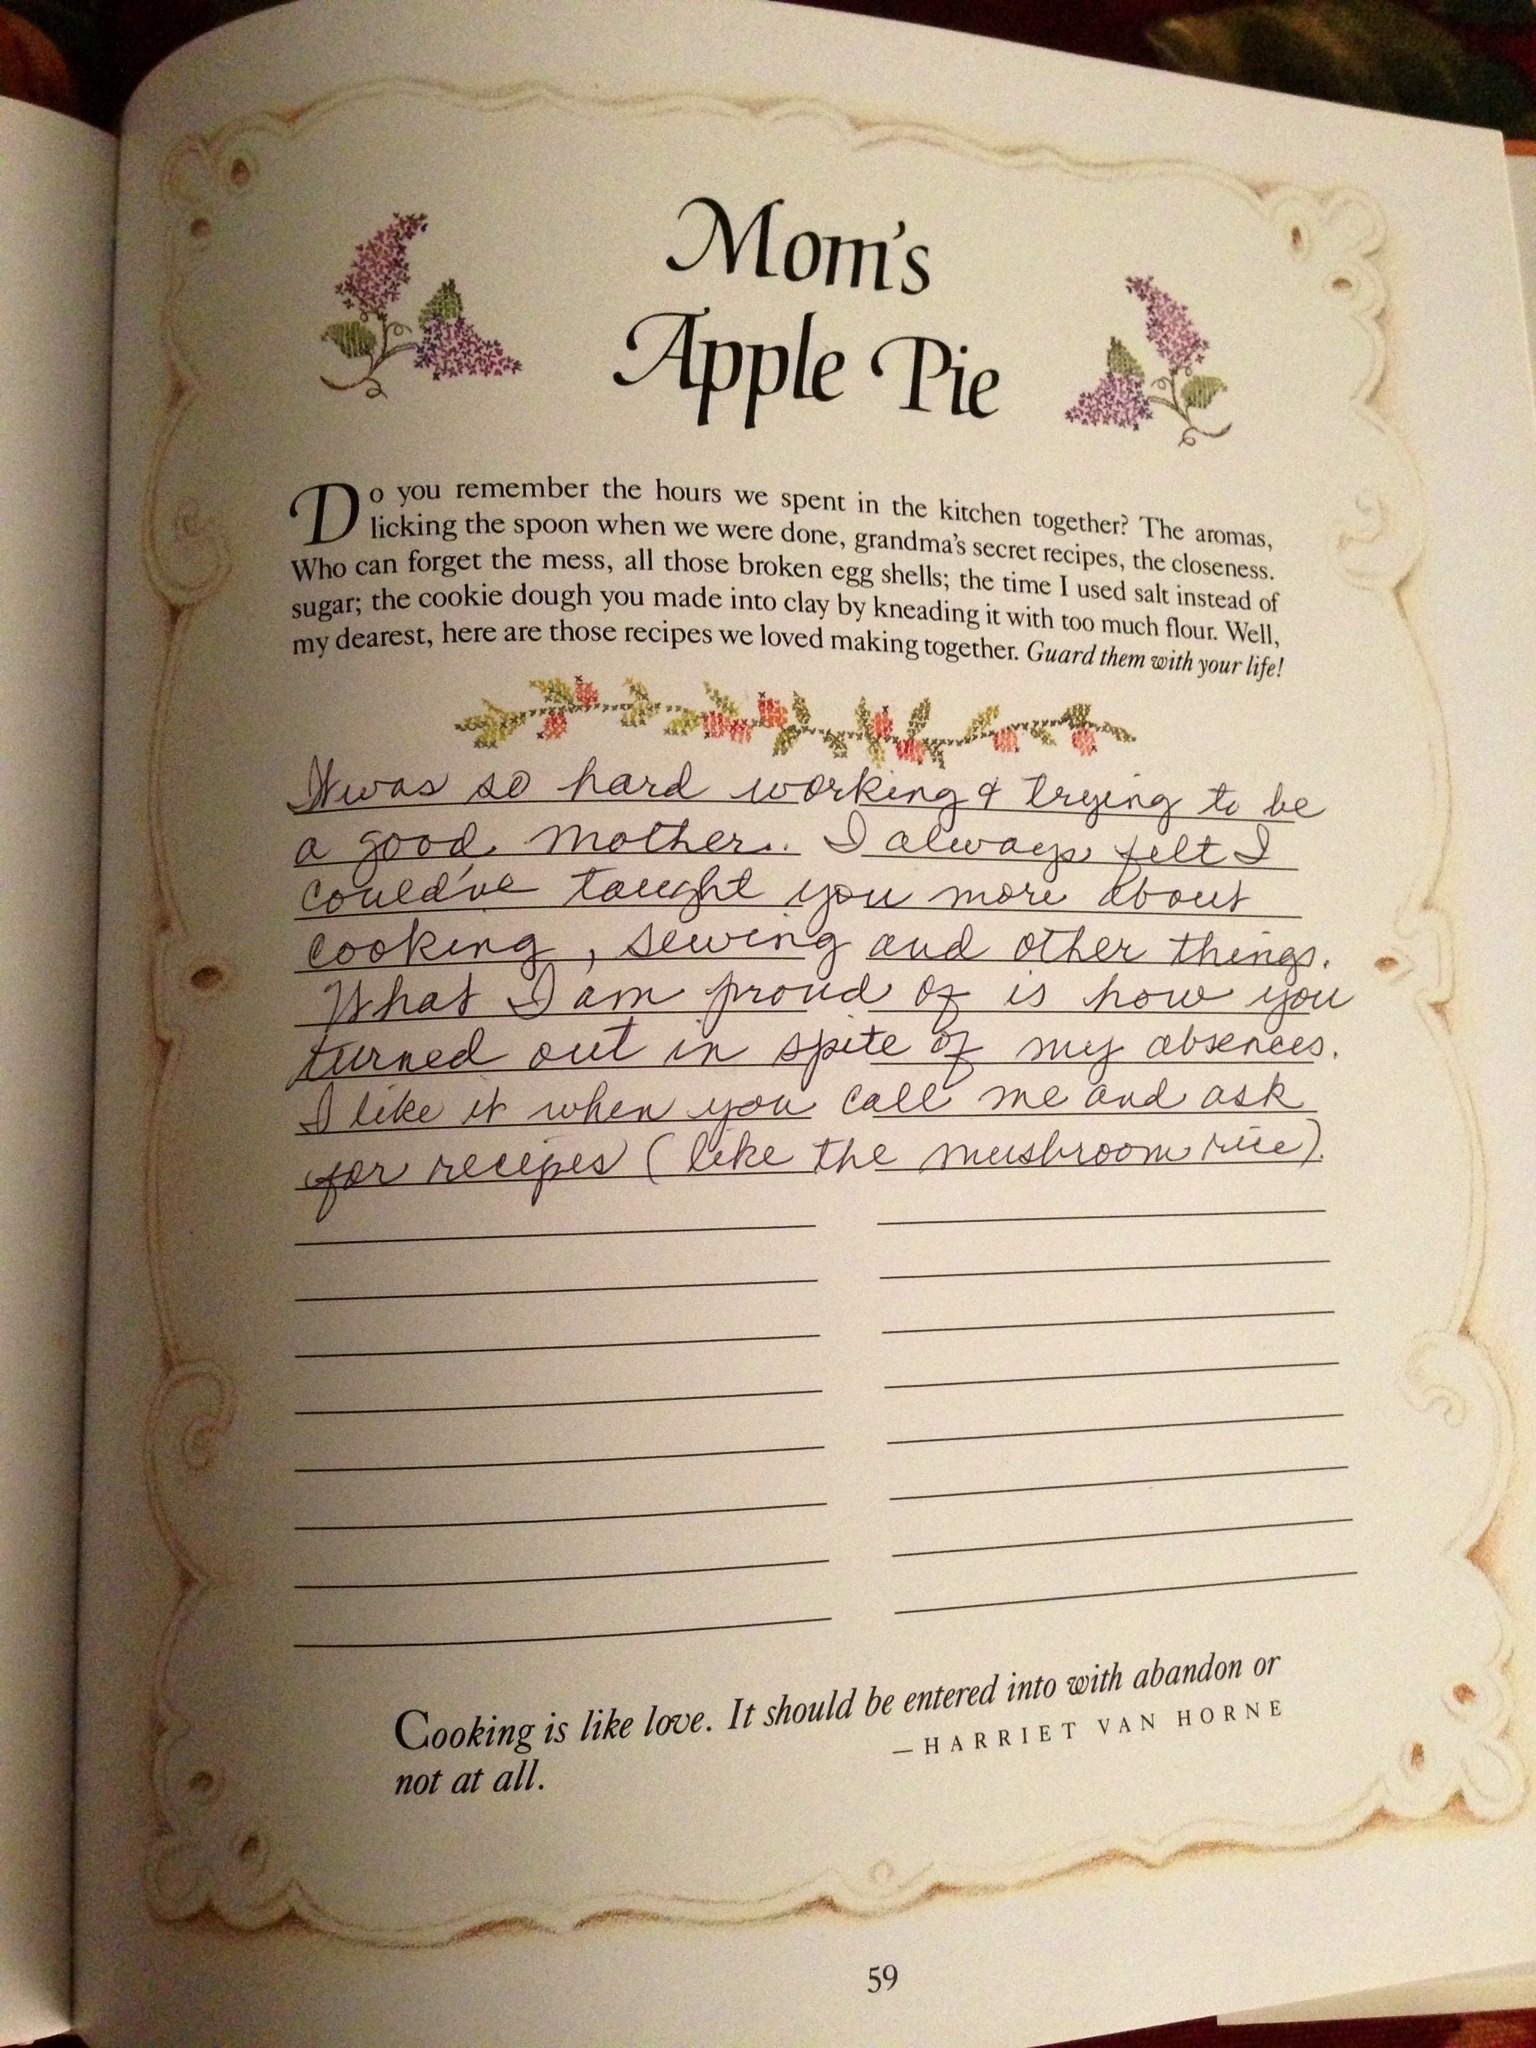 Mom's
Apple Pie
Do you remember the hours we spent in the kitchen together? The aromas,
licking the spoon when we were done, grandma's secret recipes, the closeness.
Who can forget the mess, all those broken egg shells; the time I used salt instead of
sugar; the cookie dough you made into clay by kneading it with too much flour. Well,
my dearest, here are those recipes we loved making together. Guard them with your life!
It was so hard working & trying to be
a good mother.. I always felt I
could've taught you more about
cooking, sewing and other things.
What I am proud of is how you
turned out in spite of my absences.
I like it when you call me and ask
for recipes (like the mushroom rice).
Cooking is like love. It should be entered into with abandon or
not at all.
—HARRIET VAN HORNE
59